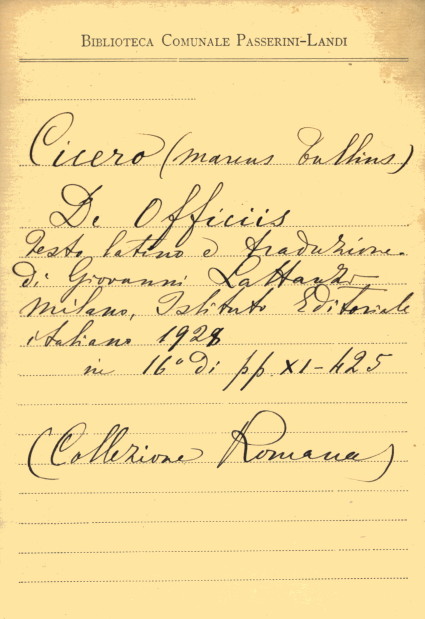 BIBLIOTECA COMUNALE PASSERINI-LANDI
Cicero (Marcus Tullius)
De Officiis
Testo latino e traduzione
di Giovanni Lattanzi
Milano, Istituto Editoriale
italiano 1928
in 16° di pp. XI-425
(Collezione Romana)